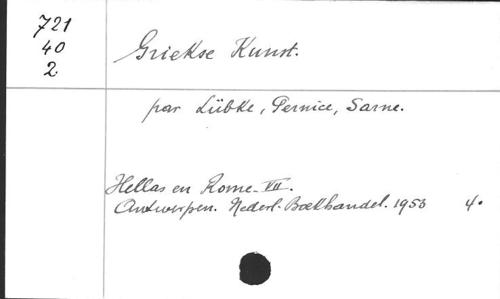 721
40
2
Griekse Kunst.
par Lübke, Pernice, Sarne.
Hellas en Rome - VII.
Antwerpen. Nederl. Boekhandel. 1953 4.